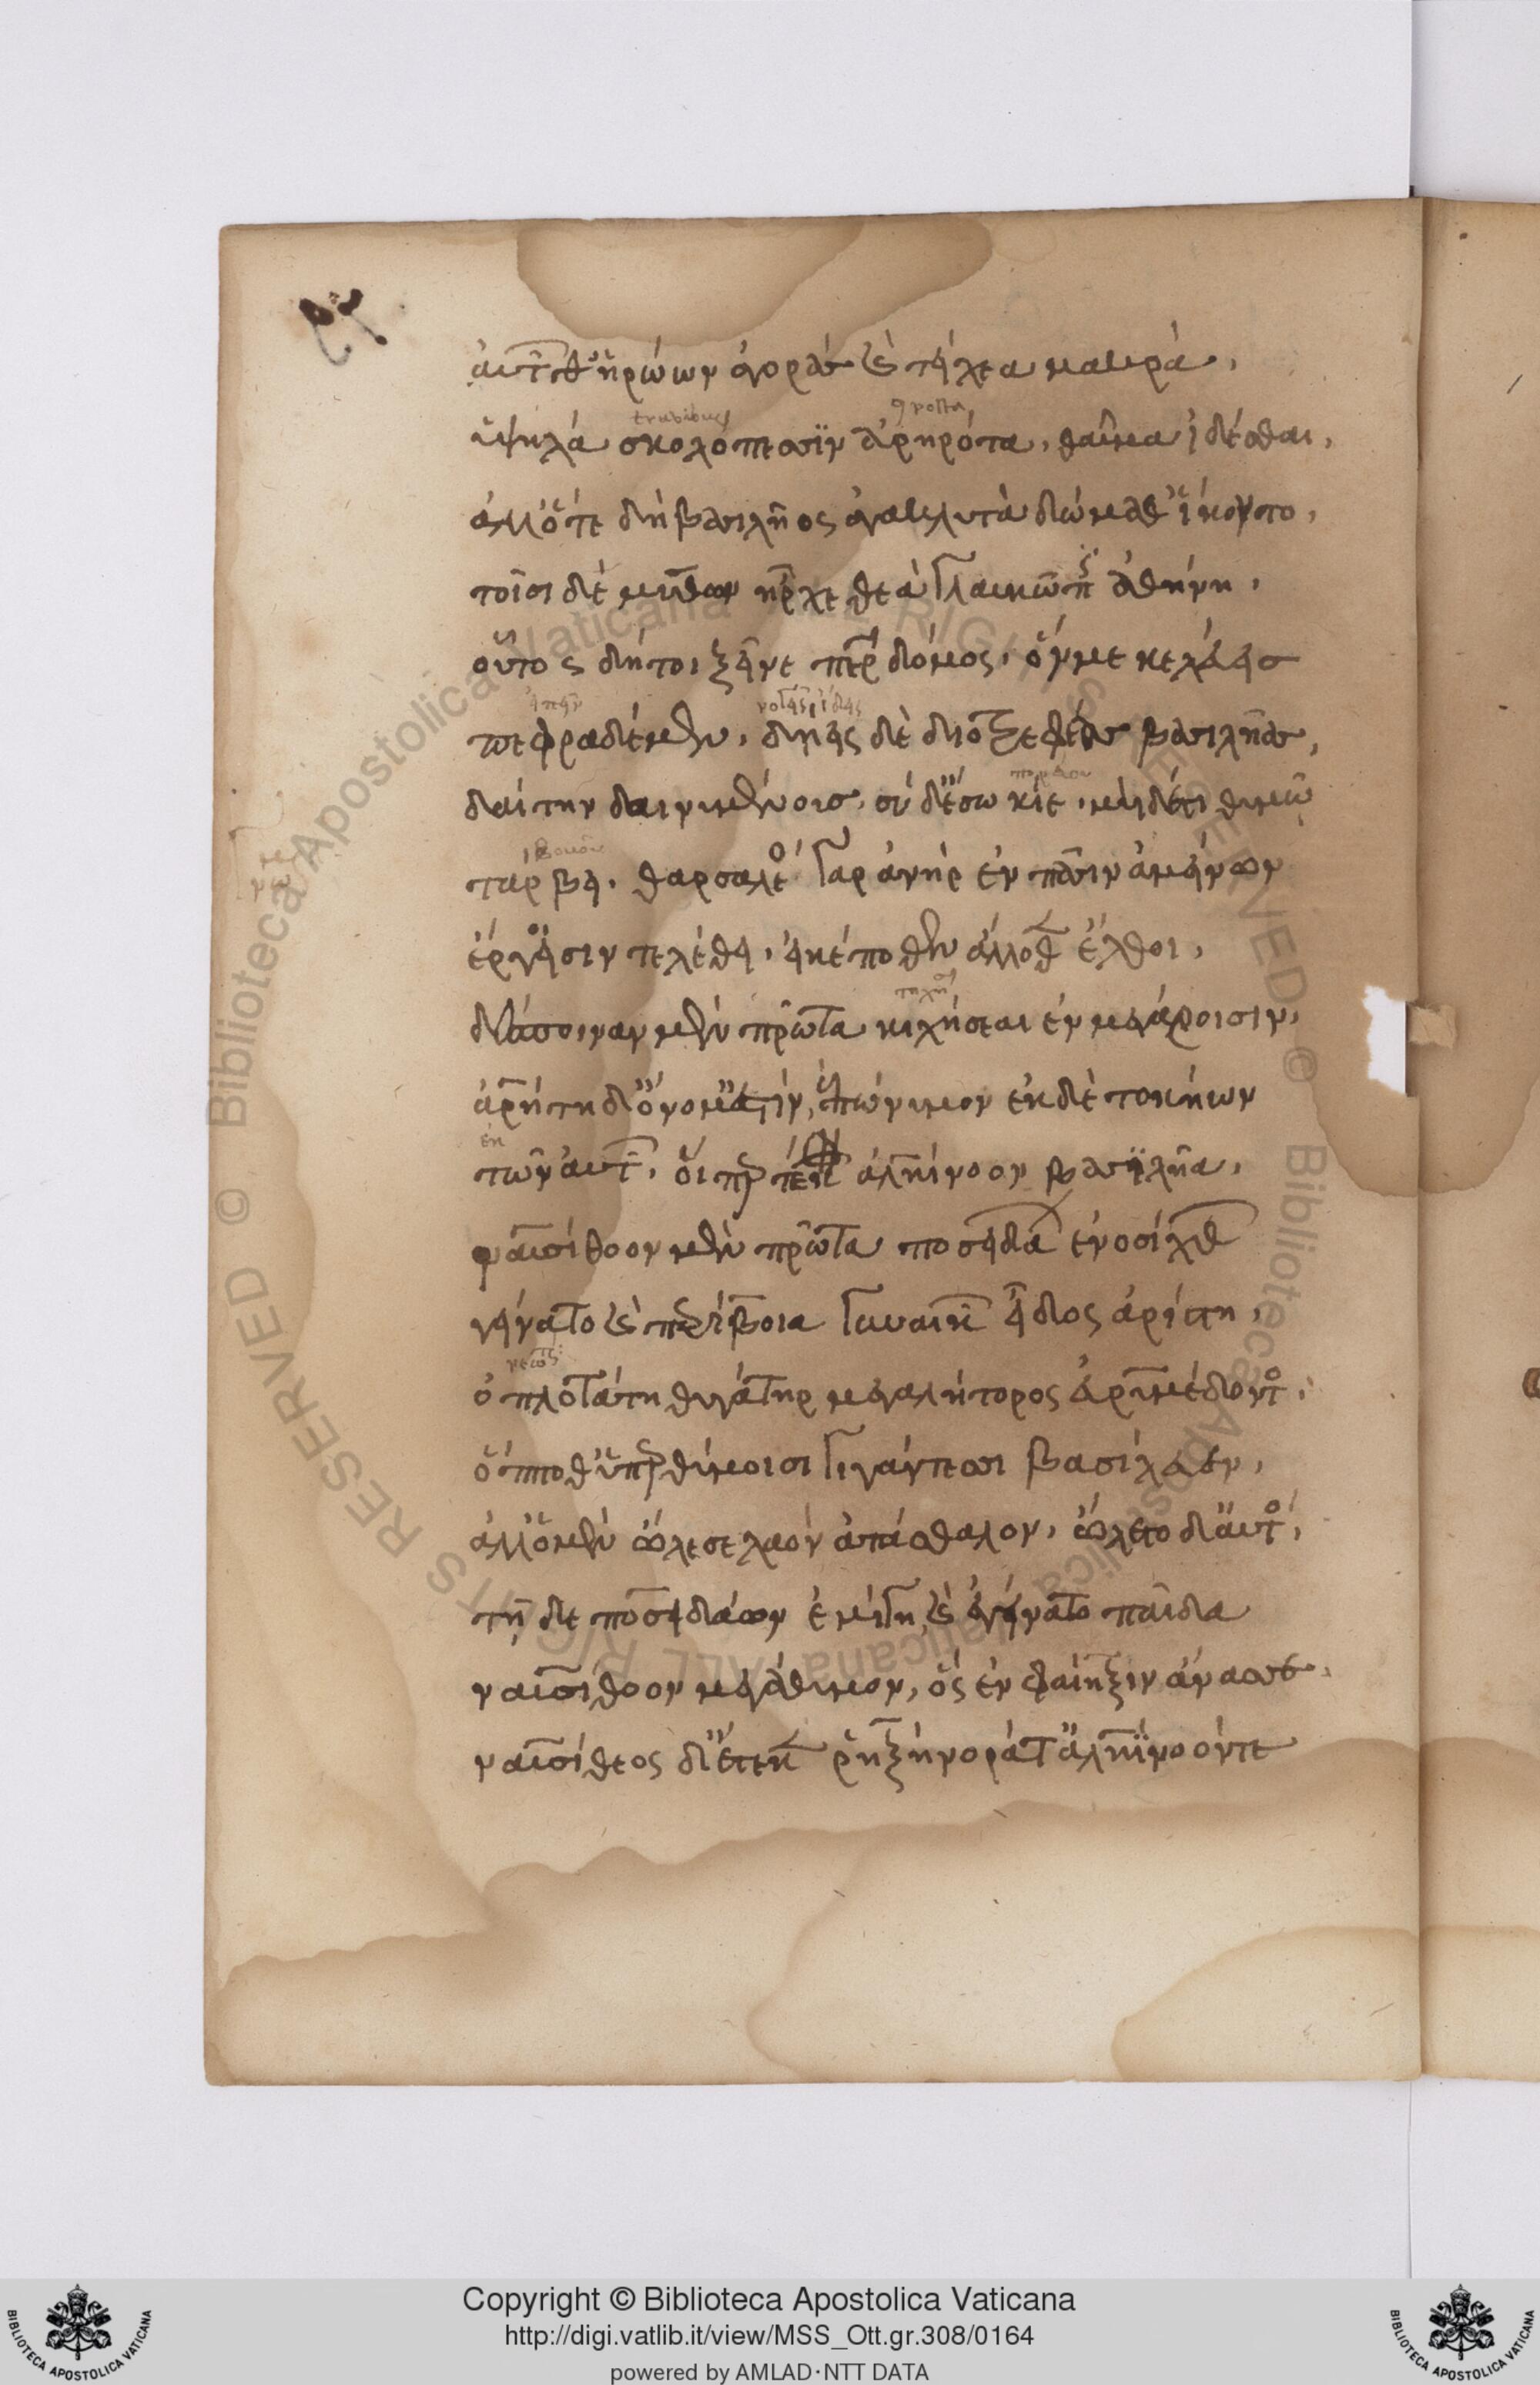 αὐτῶν θ' ἡρώων ἀγορὰς καὶ τείχεα μακρὰ,
trabibus
ὑψηλὰ σκολόπεσσιν ἀρηρότα, θαῦμα ἰδέσθαι,
ἀλλ' ὅτε δὴ βασιλῆος ἀγακλυτὰ δώμαθ' ἵκοντο,
τοῖσι δὲ μύθων ἦρχε θεὰ γλαυκῶπις ἀθήνη,
οὗτος δή τοι ξεῖνε πάτερ δόμος, ὅν με κελεύεις
πεφραδέμεν, δήεις δὲ διοτρεφέας βασιλῆας,
δαίτην δαινυμένους, σὺ δ' ἔσω κίε, μὴ δέ τι θυμῶ
τάρβει, θαρσαλέος γὰρ ἀνὴρ ἐν πᾶσιν ἀμείνων
ἔργοισιν τελέθει, εἰ καί ποθεν ἄλλοθεν ἔλθοι,
δέσποιναν μὲν πρῶτα κιχήσεαι ἐν μεγάροισιν,
ἀρήτη δ' ὄνομ' ἐστὶν ἐπώνυμον ἐκ δὲ τοκήων
ἐκ
τῶν αὐτῶν, οἵπερ τέκον ἀλκίνοον βασιλῆα,
ναυσίθοον μὲν πρῶτα ποσειδάων ἐνοσίχθων
γείνατο καὶ περίβοια γυναικῶν εἶδος ἀρίστη,
ὁπλοτάτη θυγάτηρ μεγαλήτορος εὐρυμέδοντος,
ὅς ποθ' ὑπερθύμοισι γιγάντεσσι βασίλευεν,
ἀλλ' ὁ μὲν ὤλεσε λαὸν ἀτάσθαλον, ὤλετο δ' αὐτός,
τῇ δὲ ποσειδάων ἐμίγη, καὶ ἐγείνατο παῖδα
ναυσίθοον μεγάθυμον, ὃς ἐν φαίηξιν ἄνασσε,
ναυσίθοος δ' ἔτεκεν ῥηξήνορά τ' ἀλκίνοόν τε
Copyright © Biblioteca Apostolica Vaticana
http://digi.vatlib.it/view/MSS_Ott.gr.308/0164
powered by AMLAD·NTT DATA